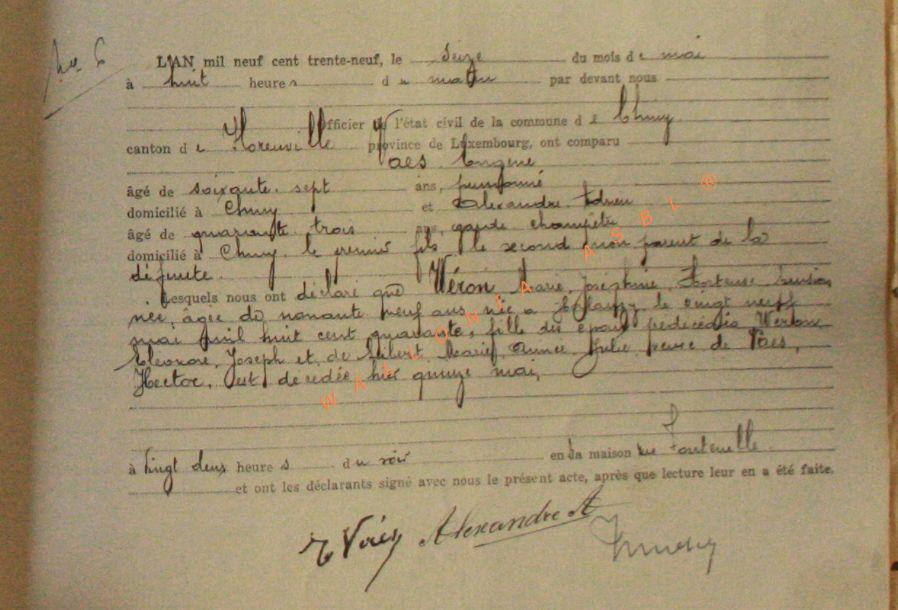 No 6
L'AN mil neuf cent trente-neuf, le seize du mois de mai
à huit heures du matin par devant nous
Officier de l'état civil de la commune de Chiny
canton de Florenville province de Luxembourg, ont comparu
Vaes Eugène
âgé de soixante sept ans, pensionné
domicilié à Chiny et Alexandre Adrien
âgé de quarante trois ans, garde champêtre
domicilié à Chiny le premier fils le second non parent de la
défunte.
Lesquels nous ont déclaré que Wéron Marie Joséphine Hortense pension
née, âgée de nonante neuf ans, née à le vingt neuf
mai mil huit cent quarante, fille des époux prédécédés Weron
Eleonore Joseph et de Marie Julie veuve de Vaes,
Hector, est décédée hier quinze mai,
à vingt deux heures du soir en sa maison rue Fontenelle
et ont les déclarants signé avec nous le présent acte, après que lecture leur en a été faite.
Alexandre A
WALLONIA ASBL ©